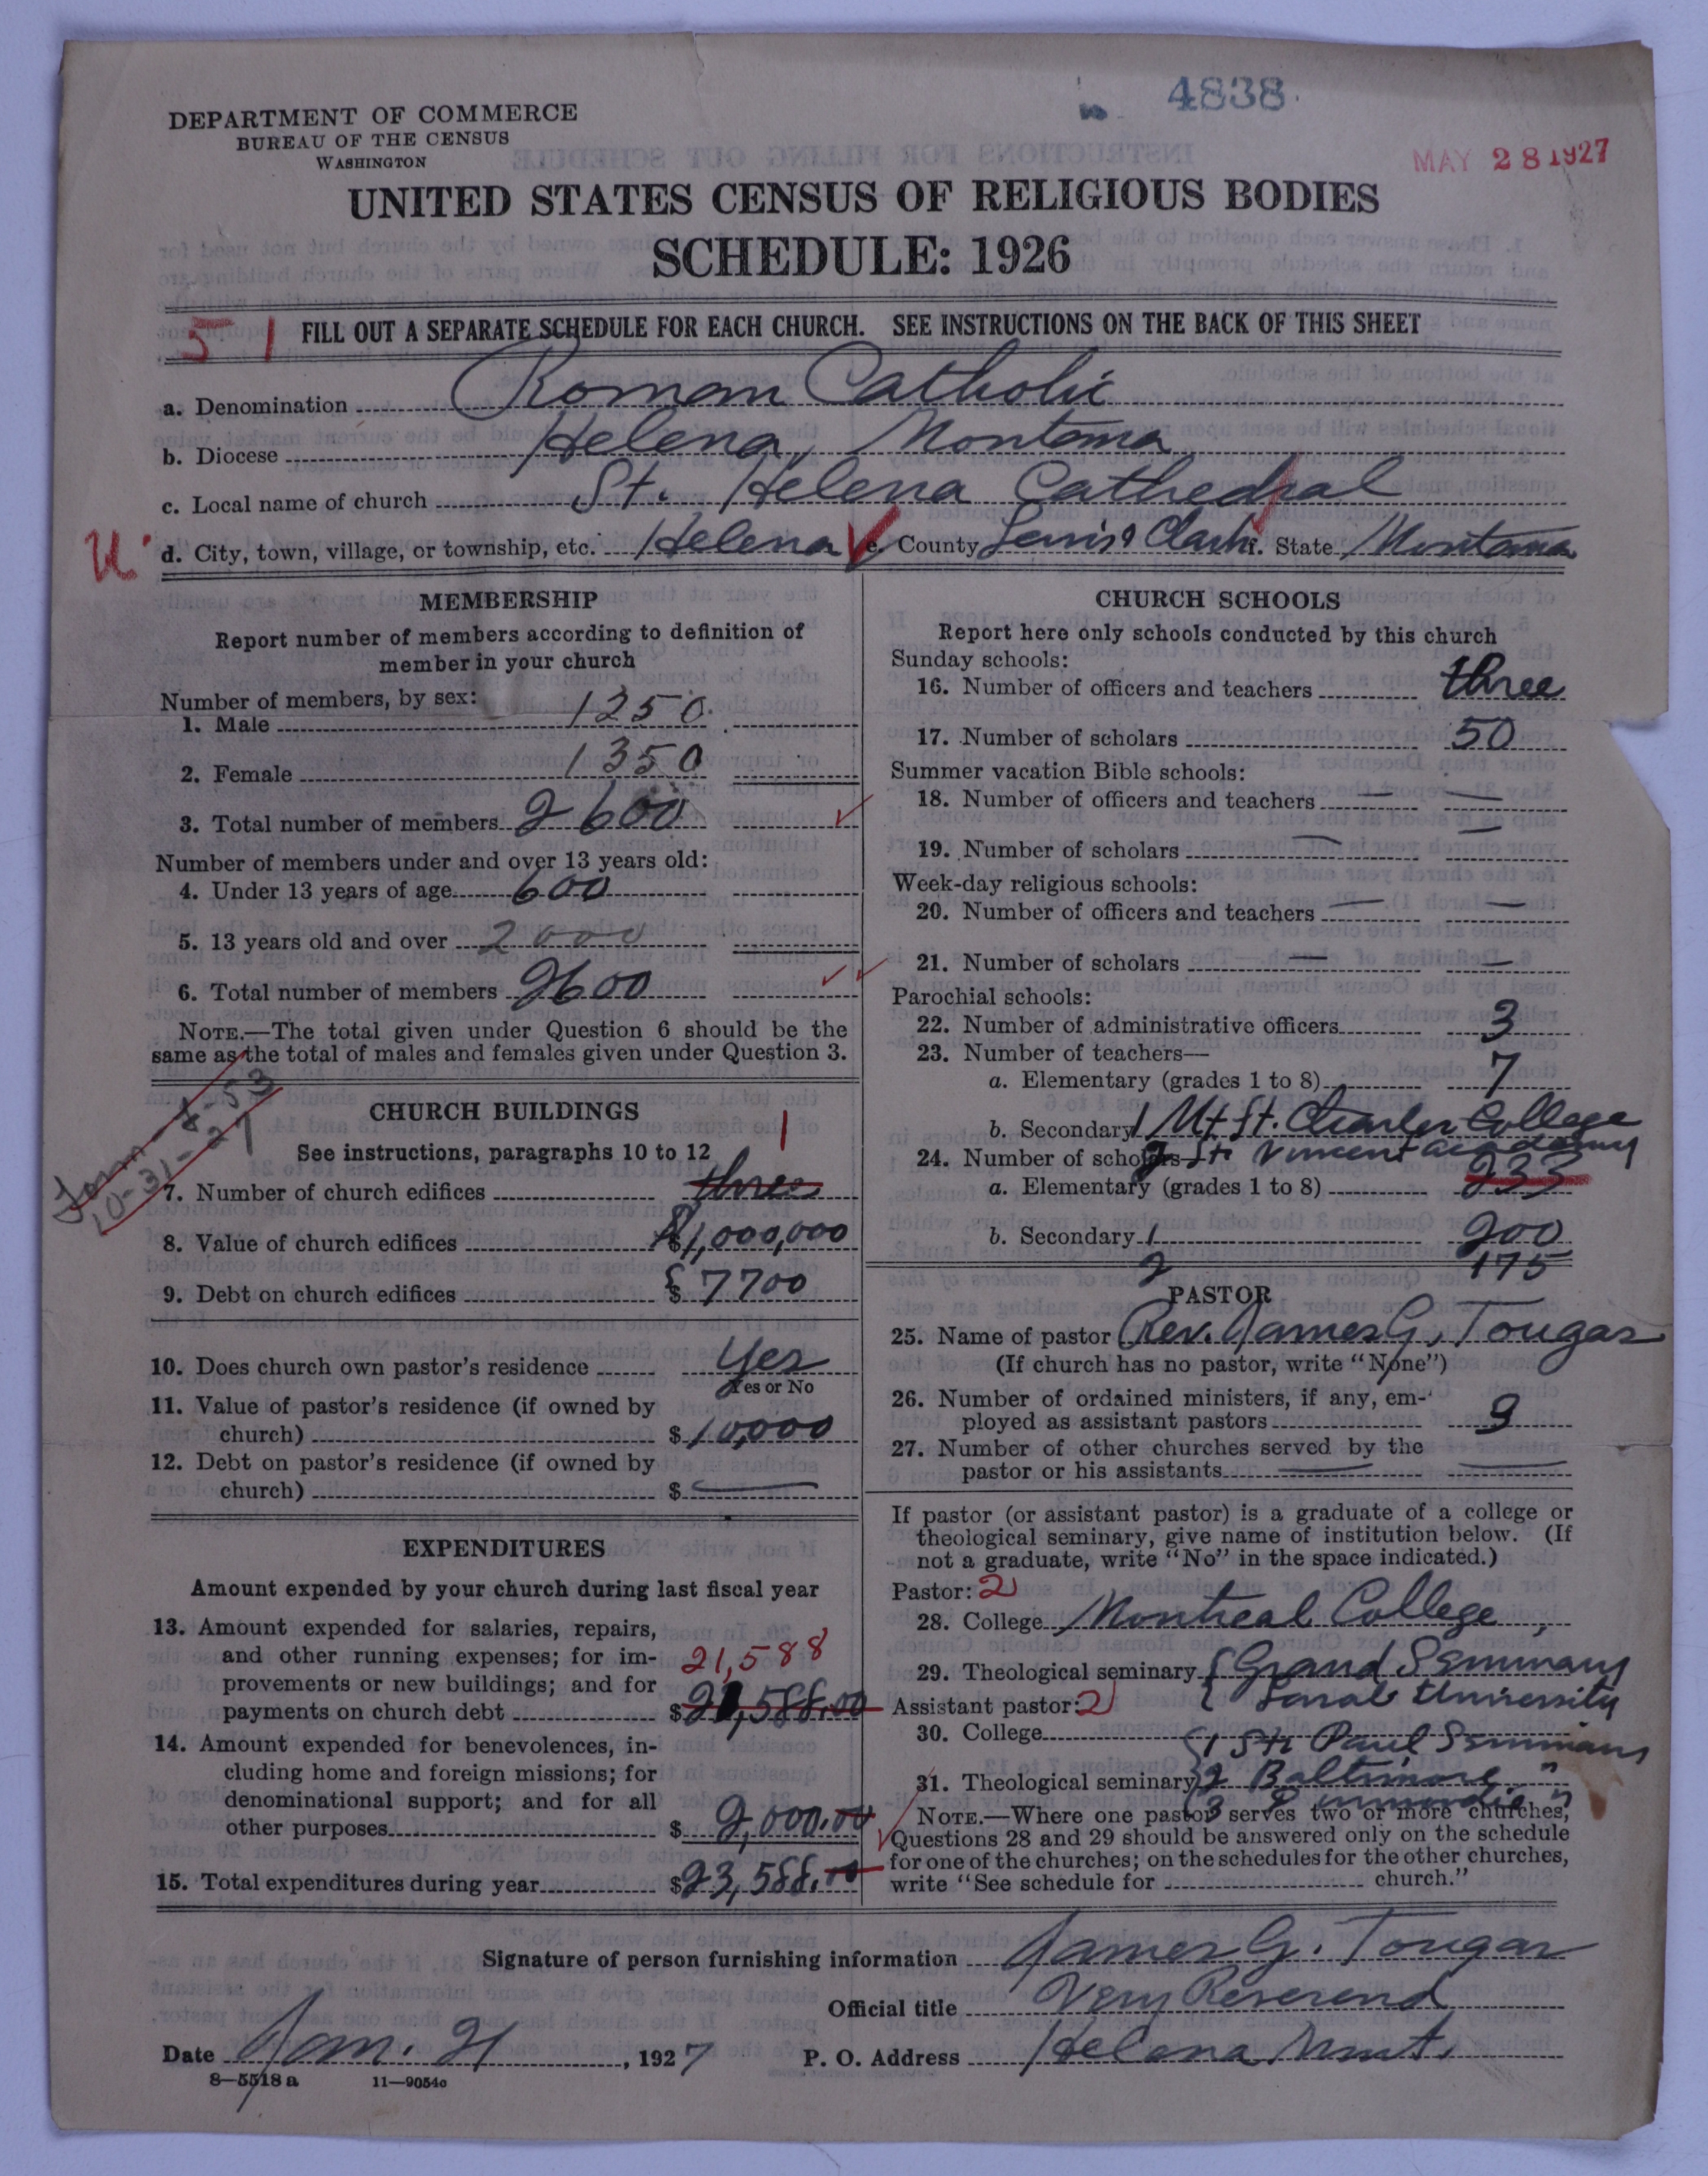 4838
DEPARTMENT OF COMMERCE
BUREAU OF THE CENSUS
WASHINGTON
MAY 28 1927
UNITED STATES CENSUS OF RELIGIOUS BODIES
SCHEDULE: 1926
51 FILL OUT A SEPARATE SCHEDULE FOR EACH CHURCH. SEE INSTRUCTIONS ON THE BACK OF THIS SHEET
a. Denomination Roman Catholic
b. Diocese Helena, Montana
c. Local name of church St. Helena Cathedral
U. d. City, town, village, or township, etc. Helena e. County Lewis & Clark f. State Montana
MEMBERSHIP
Report number of members according to definition of
member in your church
Number of members, by sex:
1. Male 1250
2. Female 1350
3. Total number of members 2600
Number of members under and over 13 years old:
4. Under 13 years of age 600
5. 13 years old and over 2000
6. Total number of members 2600
NOTE.—The total given under Question 6 should be the
same as the total of males and females given under Question 3.
Form 8-53
10-31-27
CHURCH BUILDINGS
See instructions, paragraphs 10 to 12
1
7. Number of church edifices three
8. Value of church edifices $1,000,000
9. Debt on church edifices $7700
10. Does church own pastor's residence Yes
Yes or No
11. Value of pastor's residence (if owned by
church) $10,000
12. Debt on pastor's residence (if owned by
church) $ —
EXPENDITURES
Amount expended by your church during last fiscal year
13. Amount expended for salaries, repairs,
and other running expenses; for im-
provements or new buildings; and for
21,588
payments on church debt $21,588.00
14. Amount expended for benevolences, in-
cluding home and foreign missions; for
denominational support; and for all
other purposes $2,000.00
15. Total expenditures during year $23,588.00
CHURCH SCHOOLS
Report here only schools conducted by this church
Sunday schools:
16. Number of officers and teachers three
17. Number of scholars 50
Summer vacation Bible schools:
18. Number of officers and teachers — —
19. Number of scholars — —
Week-day religious schools:
20. Number of officers and teachers — —
21. Number of scholars — —
Parochial schools:
22. Number of administrative officers 3
23. Number of teachers—
a. Elementary (grades 1 to 8) 7
b. Secondary 1 Mt. St. Charles College
24. Number of scholars— 2 St. Vincent Academy
a. Elementary (grades 1 to 8) 233
b. Secondary 1 200
2 175
PASTOR
25. Name of pastor Rev. James G. Tougas
(If church has no pastor, write "None")
26. Number of ordained ministers, if any, em-
ployed as assistant pastors 3
27. Number of other churches served by the
pastor or his assistants — —
If pastor (or assistant pastor) is a graduate of a college or
theological seminary, give name of institution below. (If
not a graduate, write "No" in the space indicated.)
Pastor: 2
28. College Montreal College,
29. Theological seminary { Grand Seminary
Assistant pastor: 2 { Laval University
30. College
1 St. Paul Seminary
31. Theological seminary 2 Baltimore "
3
NOTE.—Where one pastor serves two or more churches,
Questions 28 and 29 should be answered only on the schedule
for one of the churches; on the schedules for the other churches,
write "See schedule for church."
Signature of person furnishing information James G. Tougas
Official title Very Reverend
Date Jan. 21, 1927 P. O. Address Helena Mont.
8—5518a 11—9054c